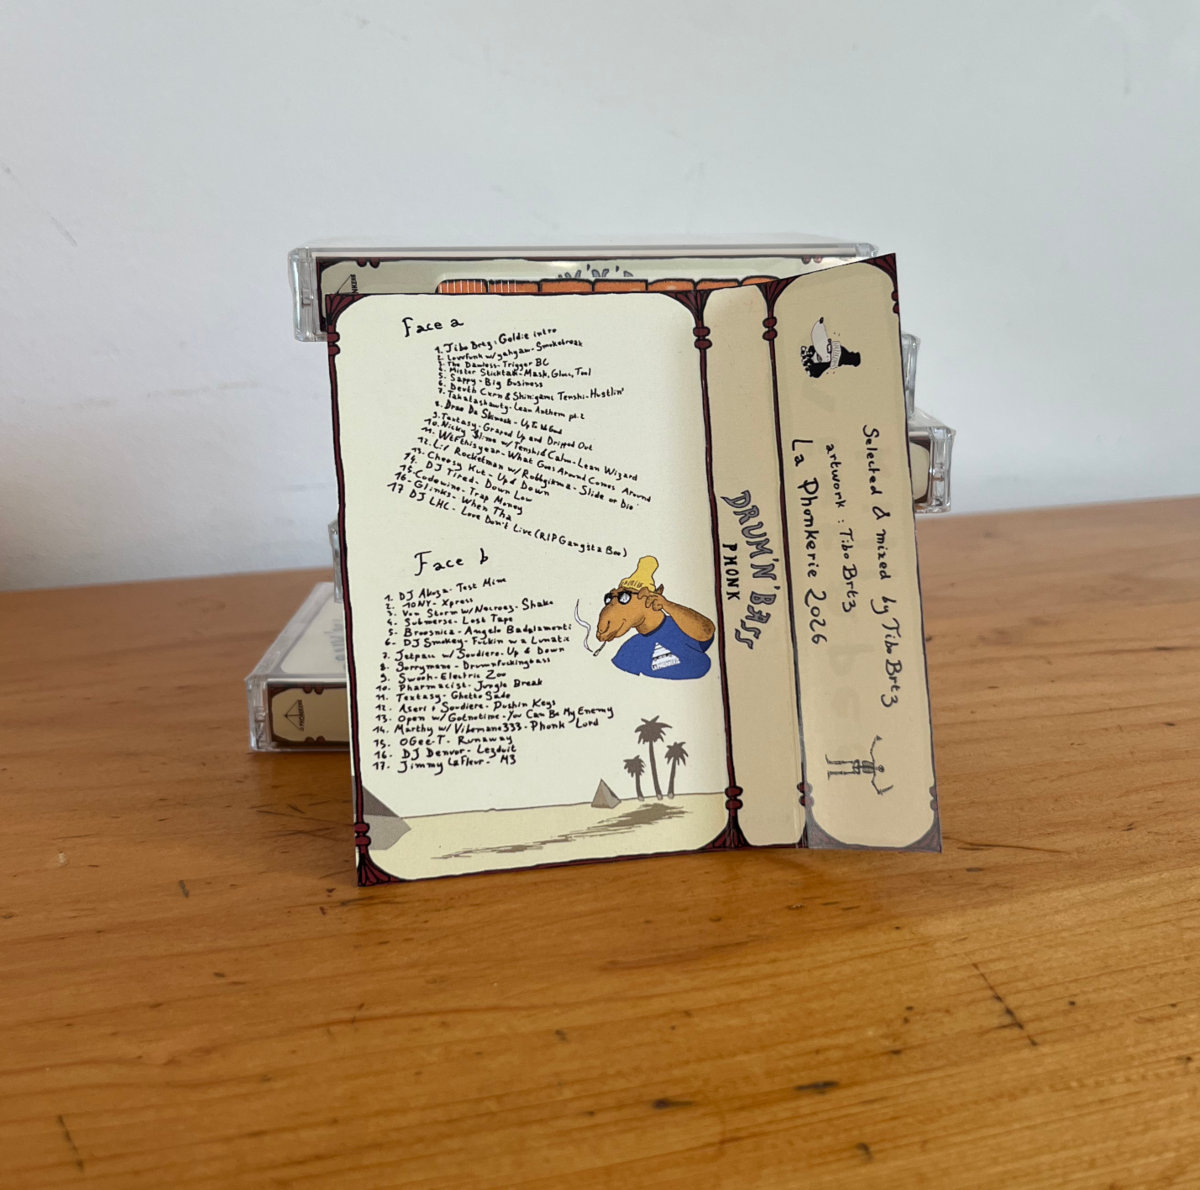 Face a
1. Tibo Brtz - Goldie intro
2. Lowfunk w/ yahyam - Smokebreak
3. The Dawless - Trigger BC
4. Mister Sticktalk - Mask, Glock, Tool
5. Sappy - Big Business
6. Devth Cvrn & Shinigami Tenshi - Hustlin'
7. Takatashawty - Lean Anthem pt. 2
8. Drae Da Skimask - Up To No Good
9. Textasy - Graped Up and Dripped Out
10. Nicky Slimo w/ Tenshid Calm - Lean Wizard
11. WTFthisyear - What Goes Around Comes Around
12. Lil Rocketman w/ Robbyikma - Slide or Die
13. Cheesy Kut - Up & Down
14. DJ Tired - Down Low
15. Codowino - Trap Money
16. Glinks - When Tha
17 DJ LHC - Love Don't Live (RIP Gangsta Boo)
Face b
1. DJ Akoza - Test Mine
2. 10NY - Xpress
3. Von Storm w/ Necroez - Shake
4. Submerse - Lost Tape
5. Broosnica - Angelo Badalamenti
6. DJ Smokey - Fuckin w a Lunatic
7. Jetpacc w/ Soudiere - Up & Down
8. Sorrymane - Drumnfuckingbass
9. Swooh - Electric Zoo
10. Pharmacist - Jungle Break
11. Textasy - Ghetto Sade
12. Aseri & Soudiere - Pushin Keys
13. Open w/ Gotnotime - You Can Be My Enemy
14. Marthy w/ Vibemane333 - Phonk Lord
15. OGee-T - Runaway
16. DJ Denver - Lezduit
17. Jimmy LaFleur - M3
DRUM'N'BASS
PHONK
Selected & mixed by Tibo Brtz
artwork : Tibo Brtz
La Phonkerie 2026